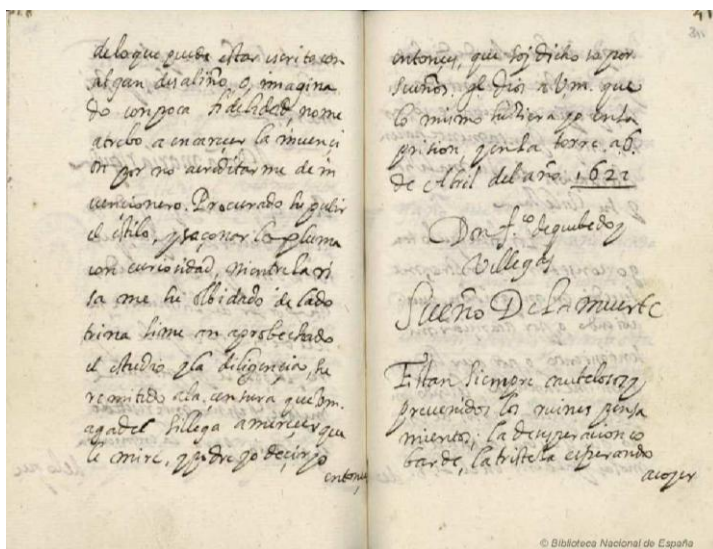 de lo que puede estar escrito con
algun desaliño, o, imagina
do con poca fidelidad, no me
atrebo a encarecer la invenci
on por no acreditarme de in
vencionero. Procurado he pulir
el estilo, y saçonar la pluma
con curiosidad, ni entre la ri
sa me he olbidado de la do
trina si me an aprobechado
el estudio y la diligencia, he
remitido a la censura que Vm.
aga del si llega a mereçer que
le mire, y podre yo deçir yo
entonçes
41
entonces, que soy dichoso por
sueños. gde Dios a Vm. que
lo mismo hiziera yo en la
prision, y en la torre a 6.
de Abril del año 1622
Don f.co de quebedo y
Villegas
Sueño De la muerte
Estan siempre cautelosos y
prevenidos los ruines pensa
mientos, la desesperacion co
barde, la tristeza esperando
a coger
© Biblioteca Nacional de España